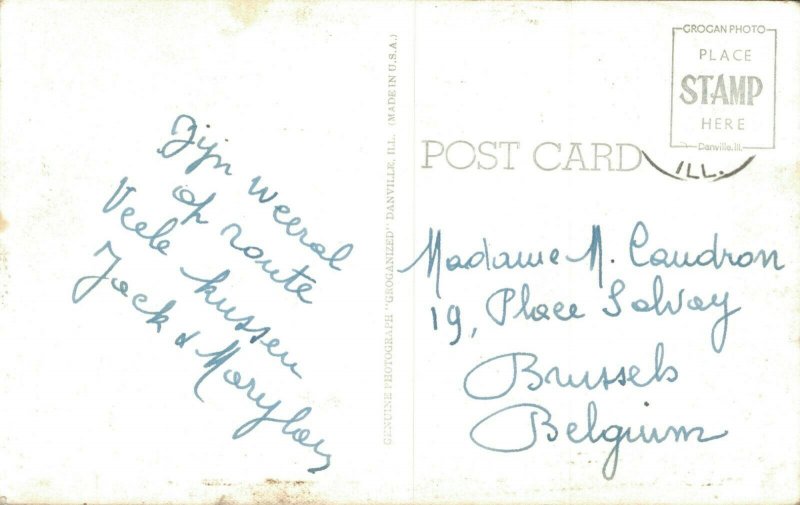 Zijn weeral
op route
Veele kussen
Jack & Marylou
GENUINE PHOTOGRAPH "GROGANIZED" DANVILLE, ILL. (MADE IN U.S.A.)
GROGAN PHOTO
PLACE
STAMP
HERE
Danville.Ill.
POST CARD
ILL.
Madame M. Caudron
19, Place Solvay
Brussels
Belgium